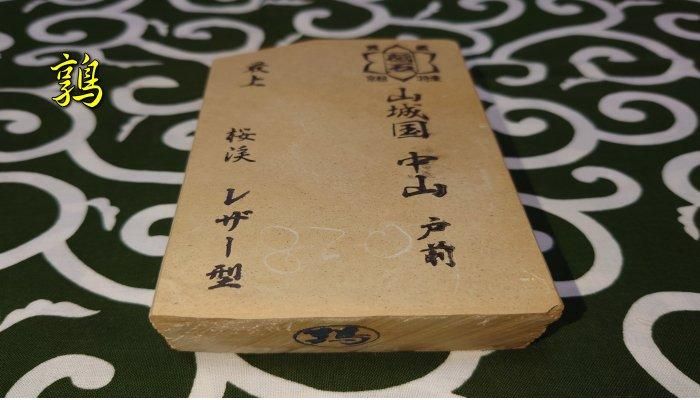 鶉
山城国 中山 戸前
最上 桜渓 レザー型
028